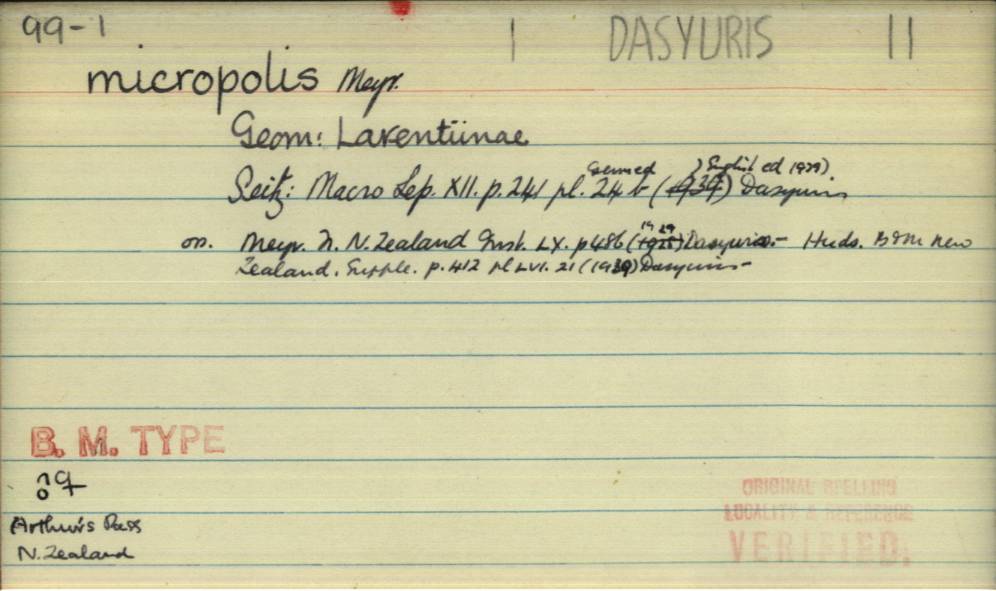 99-1 | DASYURIS 11
micropolis Meyr.
Geom: Larentiinae
Seitz: Macro Lep. XII. p. 241 pl. 24 b (1939) Dasyuris
German ed English ed 1939)
on. Meyr. N. Zealand Inst. LX. p486 (1929) Dasyuris - Huds. B&M New
Zealand. Supple. p. 412 pl LVI. 21 (1939) Dasyuris -
B. M. TYPE
♂♀
Arthur's Pass
N. Zealand
ORIGINAL SPELLING
LOCALITY & REFERENCE
VERIFIED.